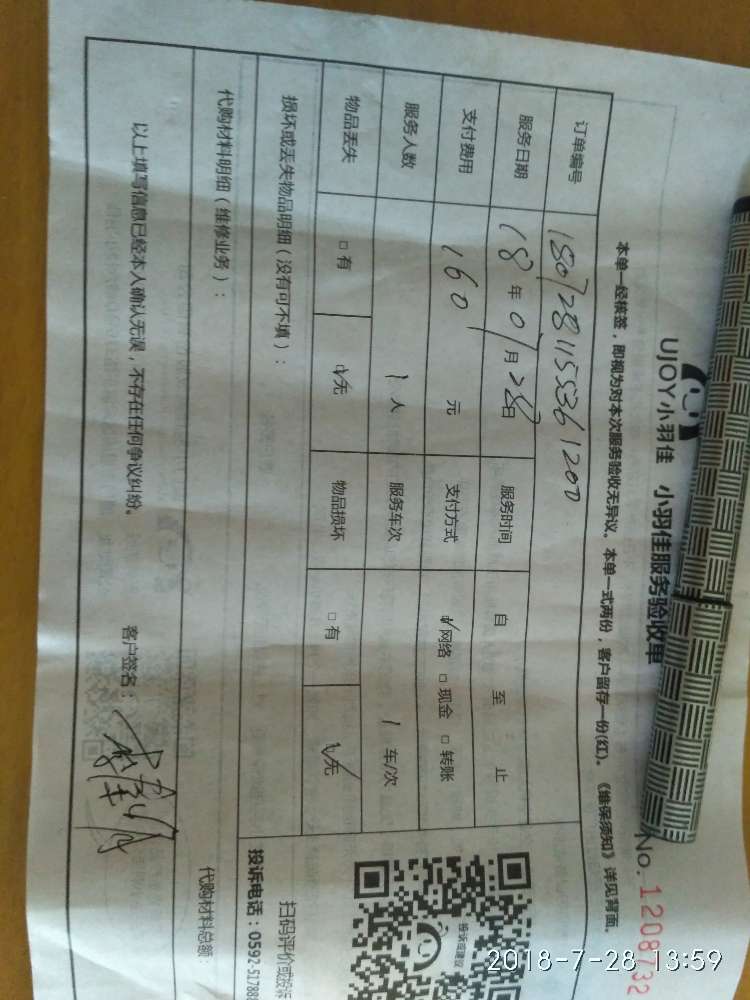 UJOY小羽佳 小羽佳服务验收单
No. 1208732
本单一经核签，即视为对本次服务验收无异议。本单一式两份，客户留存一份(红)。《维保须知》详见背面。
订单编号 1807281155361200
服务日期 18年07月28日 服务时间 自 至 止
支付费用 160 元 支付方式 ☑网络 □现金 □转账
服务人数 1 人 服务车次 1 车/次
物品丢失 □有 ☑无 物品损坏 □有 ☑无
投诉或建议
扫码评价或投诉
投诉电话：0592-51788
损坏或丢失物品明细（没有可不填）：
代购材料明细（维修业务）：
代购材料总额：
以上填写信息已经本人确认无误，不存在任何争议纠纷。 客户签名：
2018-7-28 13:59